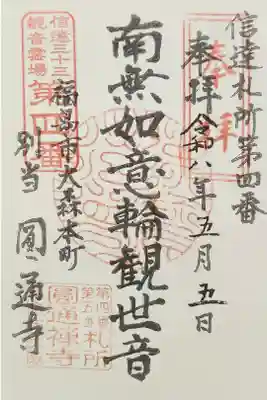 信達札所第四番
奉拝 令和六年五月五日
奉拝
南無如意輪觀世音
信達三十三
観音霊場
第四番
福島市大森本町
別当 圓通寺
第四番
第五番
札所
圓通禅寺